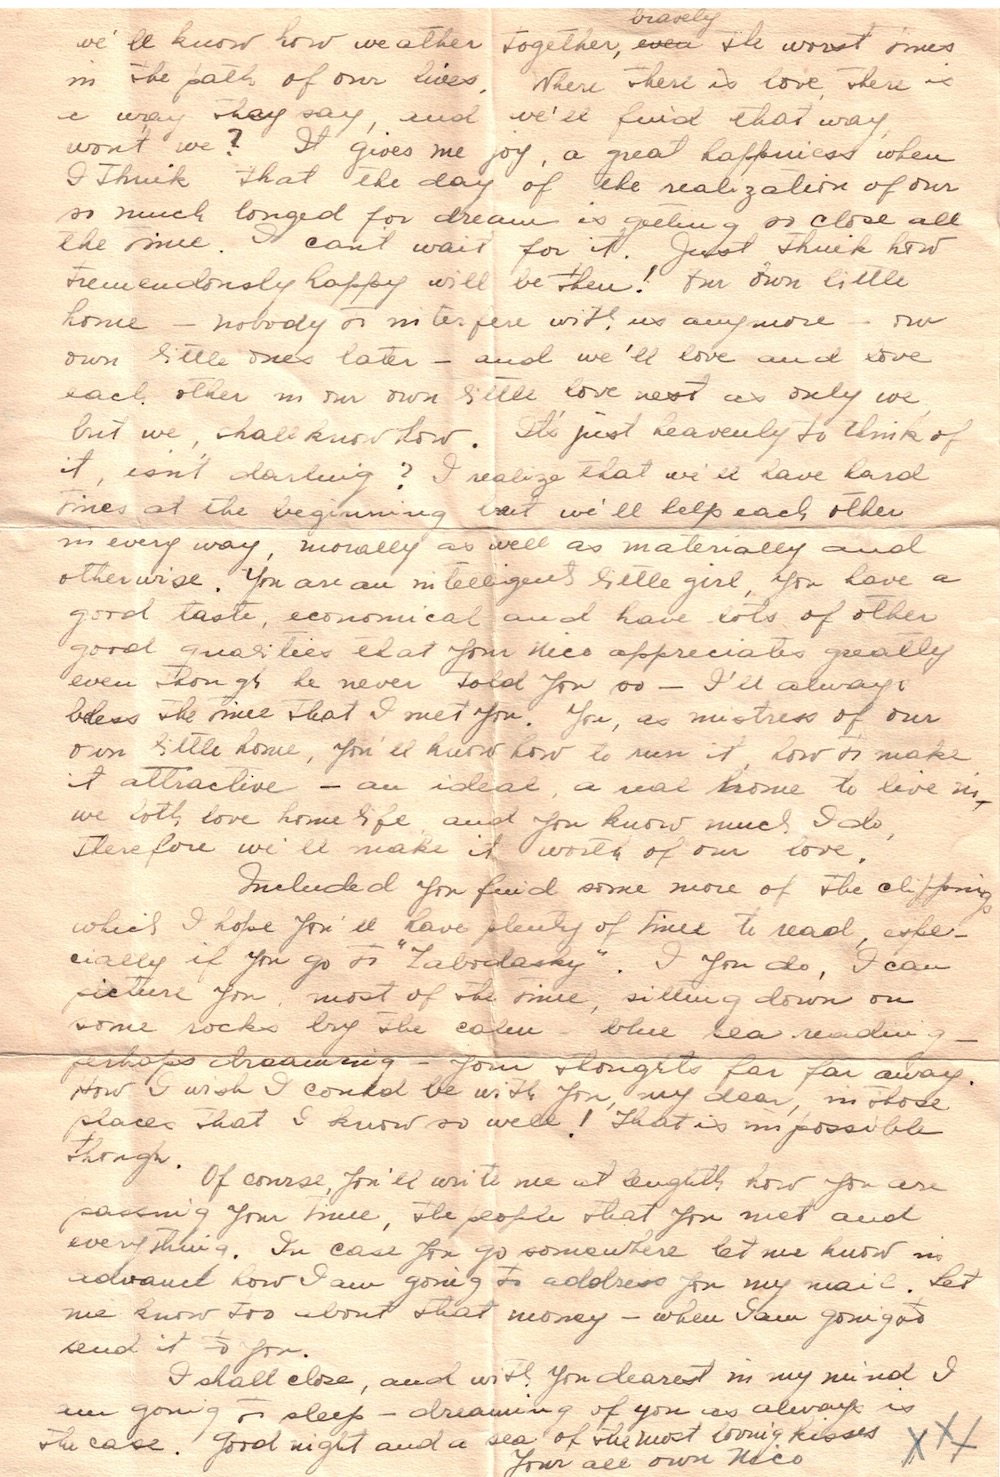 bravely
we'll know how weather together, even the worst times
in the path of our lives. Where there is love, there is
a way they say, and we'll find that way,
won't we? It gives me joy, a great happiness when
I think that the day of the realization of our
so much longed for dream is getting so close all
the time. I can't wait for it. Just think how
tremendously happy will be then! Our own little
home – nobody to interfere with us anymore – our
own little ones later – and we'll love and love
each other in our own little love nest as only we,
but we, shall know how. It's just heavenly to think of
it, isn't darling? I realize that we'll have hard
times at the beginning but we'll help each other
in every way, morally as well as materially and
otherwise. You are an intelligent little girl, you have a
good taste, economical and have lots of other
good qualities that your Nico appreciates greatly
even though he never told you so – I'll always
bless the time that I met you. You, as mistress of our
own little home, you'll know how to run it, how to make
it attractive – an ideal, a real home to live in,
we both love home life and you know much I do,
therefore we'll make it worth of our love.
Included you find some more of the clippings
which I hope you'll have plenty of time to read, espe-
cially if you go to " ". I you do, I can
picture you, most of the time, sitting down on
some rocks by the calm – blue sea reading –
perhaps dreaming – your thoughts far far away.
How I wish I could be with you, my dear, in those
places that I know so well! That is impossible
though.
Of course, you'll write me at lenghth how you are
passing your time, the people that you met and
everything. In case you go somewhere let me know in
advance how I am going to address you my mail. Let
me know too about that money – when I am going to
send it to you.
I shall close, and with you dearest in my mind I
am going to sleep – dreaming of you as always is
the case. Good night and a sea of the most loving kisses
Your all own Nico
XXX